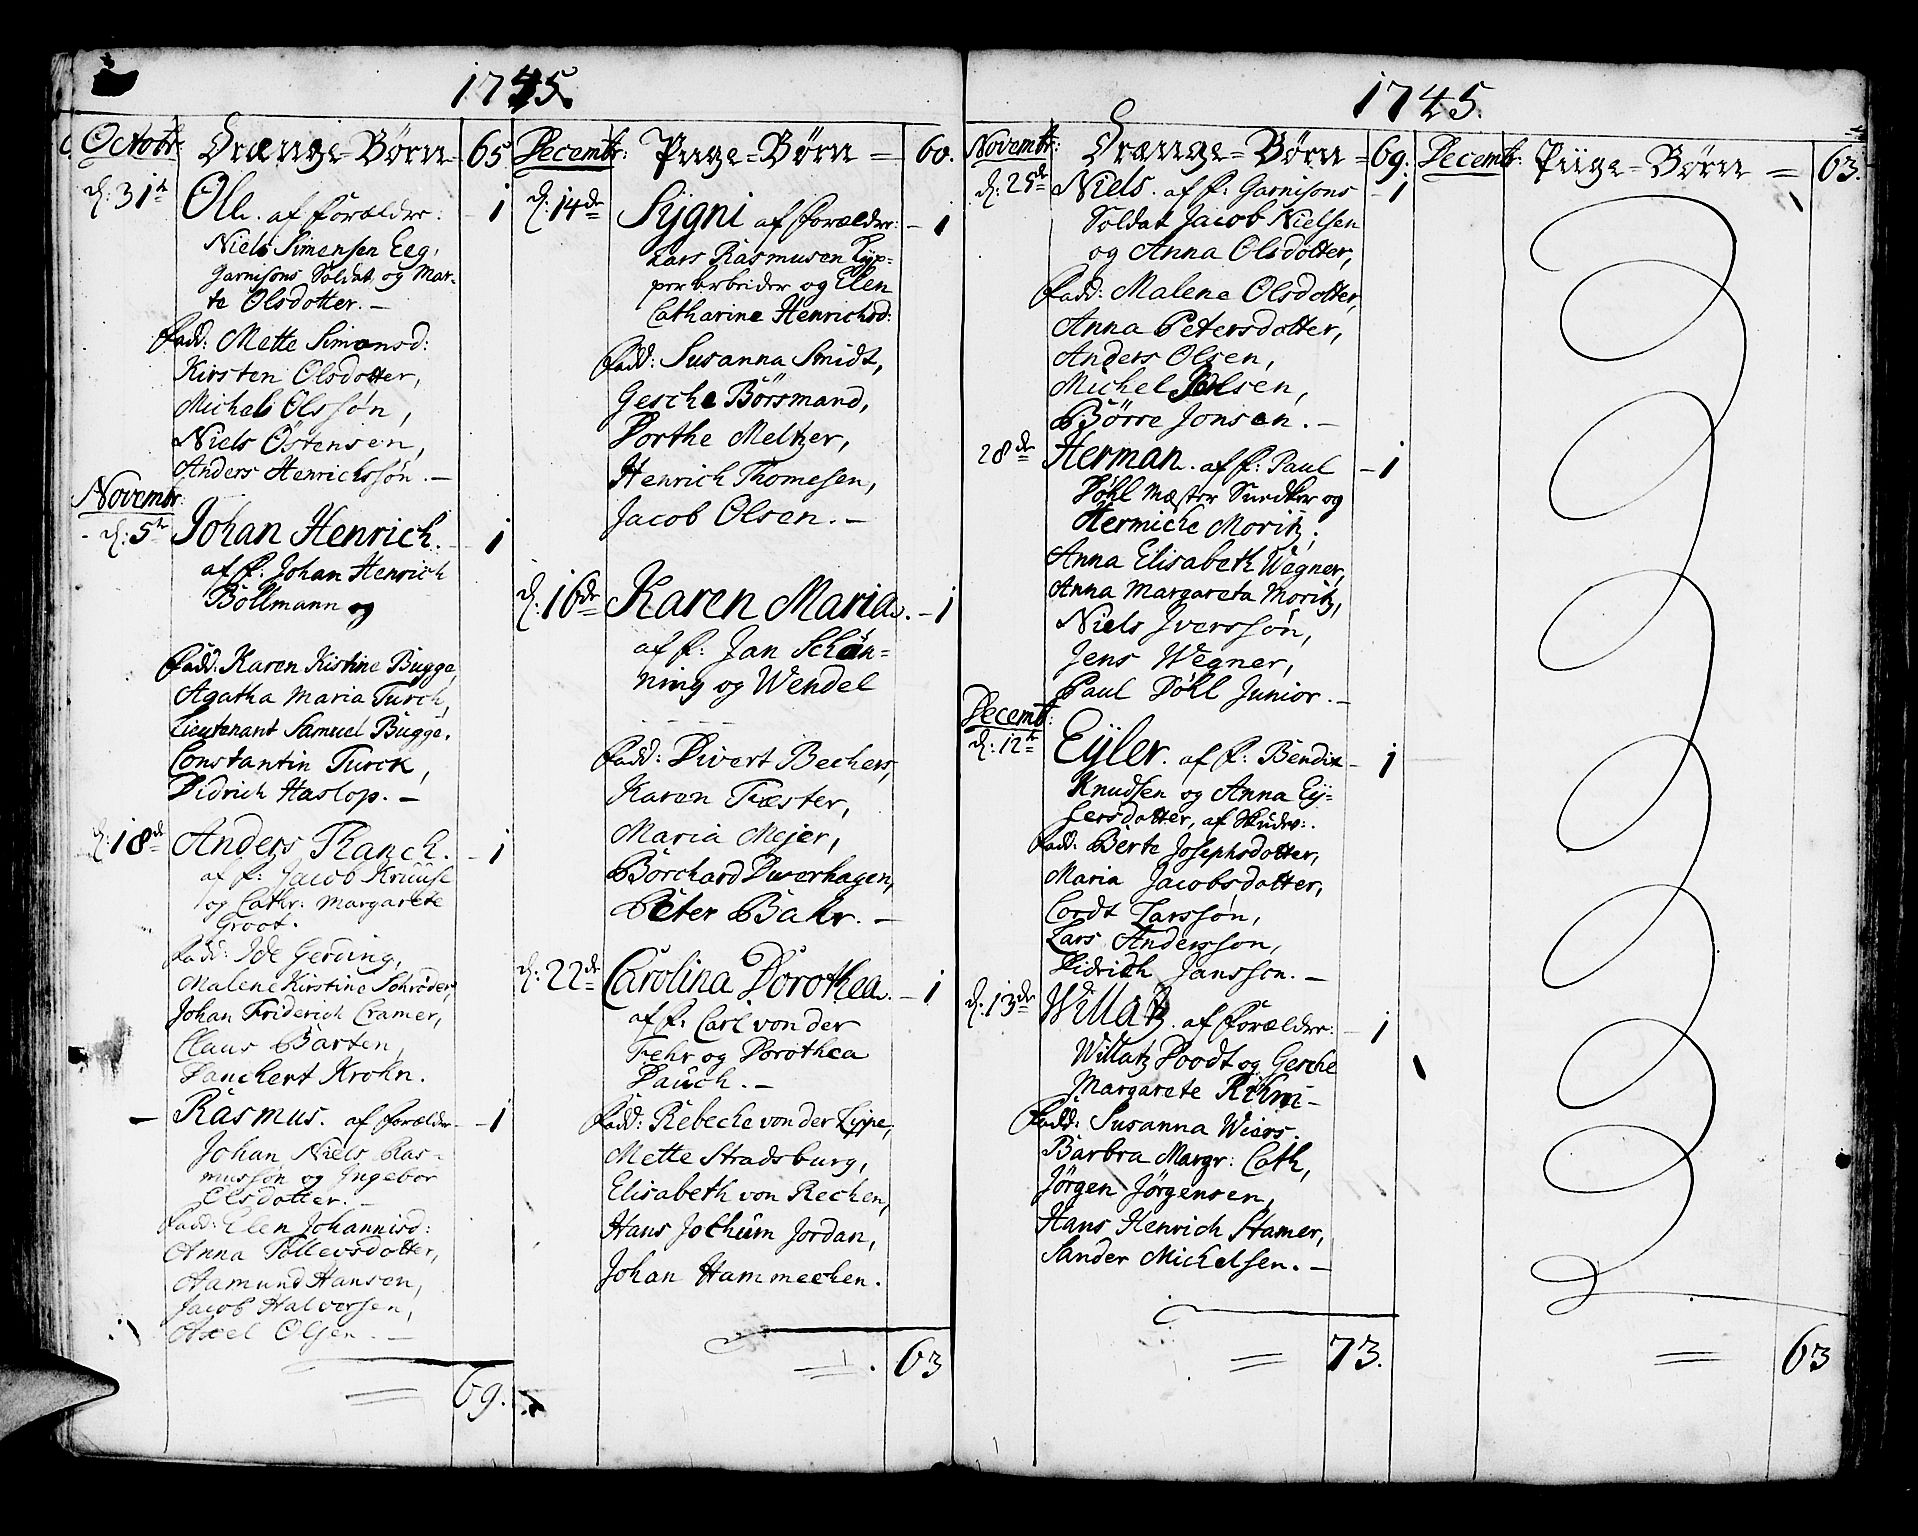 1745.
Octobr: Drænge-Børn 65
d. 31te Ole. af Forældre: - 1
Niels Simensen Eeg,
Garnisons Soldat og Mar-
te Olsdotter. -
Fadd: Mette Simonsd:
Kirsten Olsdotter,
Michel Olssøn,
Niels Östensen,
Anders Henrichssøn. -
Novembr:
d. 5te Johan Henrich. - 1
af F: Johan Henrich
Böllmann og
Fadd: Karen Kistine Bugge,
Agatha Maria Turck,
Lieutenant Samuel Bugge,
Constantin Turck,
Didrich Haslop. -
d. 18de Anders Kanck. - 1
af F: Jacob Kruuse
og Cathr: Margarete
Groot.
Fadd: Ide Gerding,
Malene Kirstine Schrøder,
Johan Friderich Cramer,
Claus Barten,
Danckert Krohn.
- Rasmus. af Forældre - 1
Johan Niels Ras-
mussøn og Ingebor
Elsdotter. -
Fadd: Elen Johannisd:
Anna Tollevsdotter,
Aamund Hanson,
Jacob Halversen,
Axel Olsen. -
= 69.
Decembr: Piige-Børn = 60.
d. 14de Sygni af Forældre: - 1
Lars Rasmusen Kyp-
per Arbeider og Elen
Catharine Henrichsd:
Fadd: Susanna Smidt,
Gesche Börsmand,
Dorthe Meltzer,
Henrich Thomesen,
Jacob Olsen. -
d. 16de Karen Maria. - 1
af F: Jan Schøn-
ning og Wendel
Fadd: Divert Becher,
Karen Fæster,
Maria Mejer,
Borchard Dwerhagen,
Peter Bahr. -
d. 22de Carolina Dorothea. - 1
af F: Carl von der
Fehr og Dorothea
Dauch. -
Fadd: Rebecke von der Lippe,
Mette Stradsburg,
Elisabeth von Recken,
Hans Jochum Jordan,
Johan Hammecken.
= 63
1745.
Novembr: Drænge-Børn = 69.
d. 25de Niels. af F: Garnisons - 1
Soldat Jacob Nielsen
og Anna Olsdotter,
Fadd: Malene Olsdotter,
Anna Petersdotter,
Anders Olsen,
Michel Olsen,
Börre Jonsen. -
28de Herman. af F: Paul - 1
Döhl Mæster Snedker og
Hermiche Moritz;
Anna Elisabeth Wegner,
Anna Margareta Moritz,
Niels Iverssøn,
Jens Wegner,
Paul Döhl Junior. -
Decemb:
d. 12te Eyler. af F: Bendix - 1
Knudsen og Anna Ey-
lersdotter, af Skudev:.
Fadd: Berte Josephsdotter,
Maria Jacobsdotter,
Cordt Larssøn,
Lars Anderssøn,
Didrich Janssøn. -
d. 13de Willatz. af Forældre: - 1
Willatz Doodt og Gesche
Margarete
Fadd: Susanna Wiers.
Barbra Margr: Cath,
Jörgen Jörgensen,
Hans Henrich Stamer,
Sander Michelsen. -
= 73.
Decembr: Piige-Børn = 63.
= 63